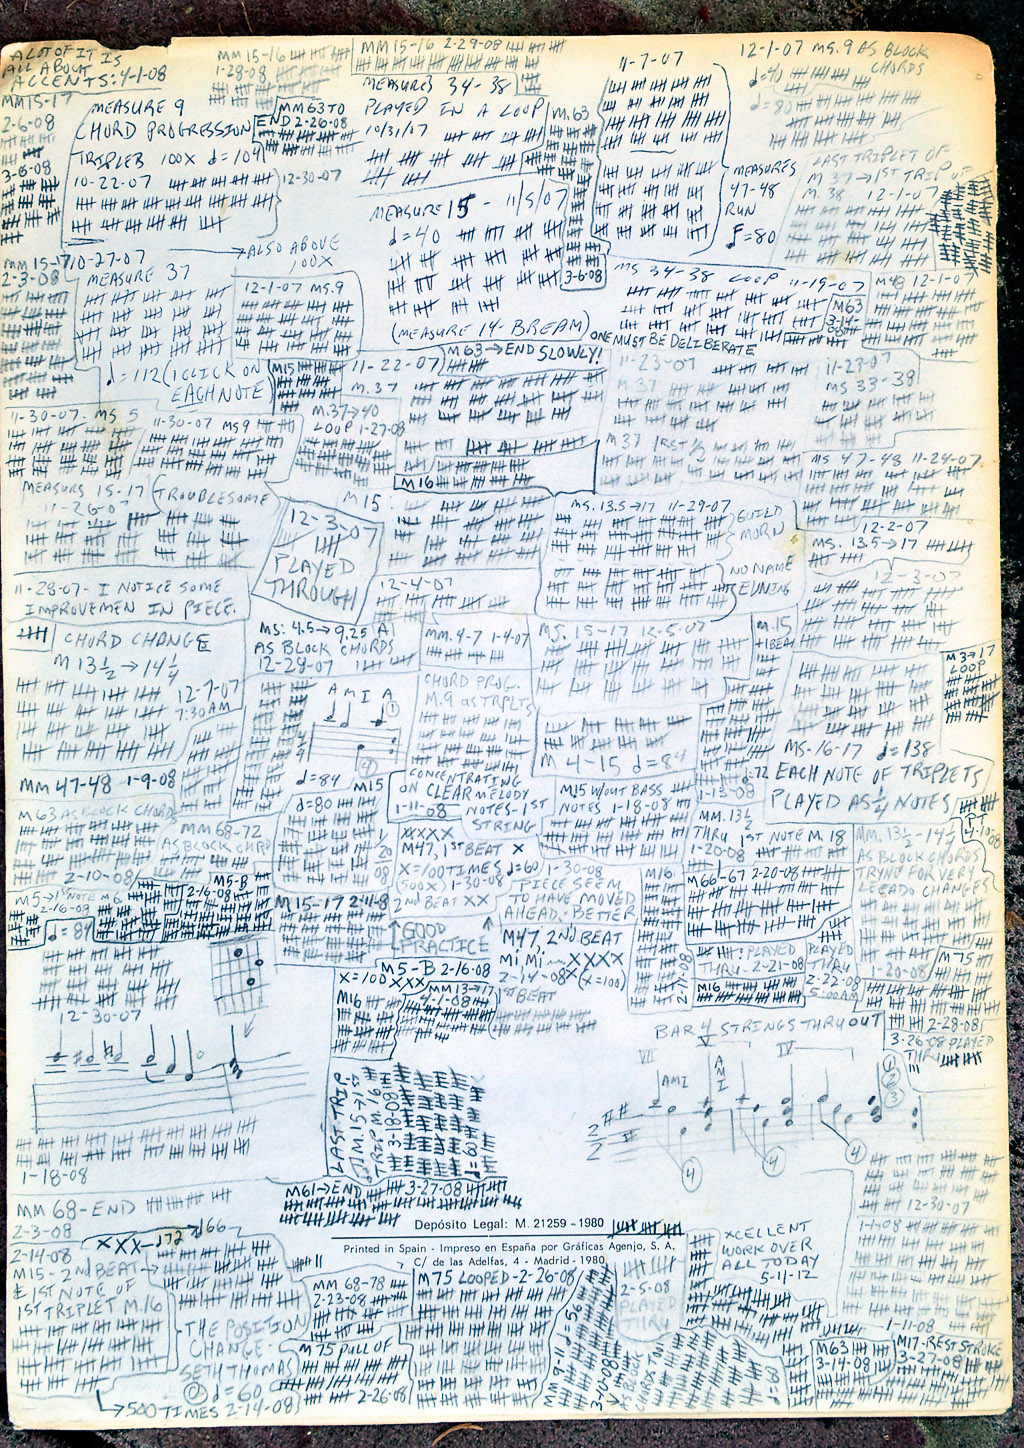 A LOT OF IT IS
ALL ABOUT
ACCENTS: 4-1-08
MM 15-17
2-6-08
3-6-08
MM 15-16
1-28-08
MM 15-16 2-29-08
MEASURES 34-38
PLAYED IN A LOOP
10/31/07
MEASURE 9
CHORD PROGRESSION
TRIPLEB 100X ♩=104
10-22-07
MM 63 TO
END 2-26-08
12-30-07
M.63
3-6-08
11-7-07
MEASURES
47-48
RUN
♩=80
12-1-07 MS.9 AS BLOCK
CHORDS
♩=40
♩=80
LAST TRIPLET OF
M 37→1ST TRIP OF
M.38 12-1-07
MEASURE 15 - 11/5/07
♩=40
(MEASURE 14-BREAM)
ALSO ABOVE
100X
MM 15-17
2-3-08
10-27-07
MEASURE 37
♩=112 (1 CLICK ON
EACH NOTE)
12-1-07 MS.9
MS 34-38 LOOP 11-19-07
ONE MUST BE DELIBERATE
M63
M48 12-1-07
M15
11-22-07
M.37
M63→END SLOWLY!
11-23-07
M.37
11-23-07
MS 33-38
11-30-07 MS 5
11-30-07 MS9
M.37→40
LOOP 1-27-08
M16
M37 1RST 1/2
MS 47-48 11-24-07
MEASURS 15-17 (TROUBLESOME
11-26-07
12-3-07
PLAYED
THROUGH
M15
MS. 13.5→17 11-29-07
GUILD
MORN
NO NAME
EVNING
12-2-07
MS. 13.5→17
12-3-07
11-28-07 - I NOTICE SOME
IMPROVEMEN IN PIECE.
CHORD CHANGE
M 13 1/2 → 14 1/4
12-7-07
7:30 AM
12-4-07
MS: 4.5→9.25 (A)
AS BLOCK CHORDS
12-29-07
MM. 4-7 1-4-07
MS. 15-17 12-5-07
M.15
+1BEAT
M3→17
LOOP
A M I A
♩=84
CHORD PROG.
M.9 AS TRPLTS
M 4-15 ♩=84
MS-16-17 ♩=138
EACH NOTE OF TRIPLETS
PLAYED AS 1/4 NOTES
MM 47-48 1-9-08
M63 AS BLOCK CHORDS
2-10-08
MM 68-72
AS BLOCK CHRD
♩=80
M15
CONCENTRATING
ON CLEAR MELODY
1-11-08 NOTES-1ST
STRING
M15 W/OUT BASS
NOTES 1-18-08
♩=72
1-13-08
MM. 13 1/2
THRU 1ST NOTE M 18
1-20-08
MM. 13 1/2 - 14 1/4
AS BLOCK CHORDS
TRYNG FOR VERY
LEGADO CHANGES
1-20-08
XXXX
M47, 1ST BEAT X
X=100 TIMES ♩=60
(500X) 1-30-08
2ND BEAT XX
1-30-08
PIECE SEEM
TO HAVE MOVED
AHEAD-BETTER
M5→1ST NOTE M6
2-16-08
♩=84
M5-B
2-16-08
M15-17 2-11-08
GOOD
PRACTICE
M47, 2ND BEAT
MI MI XXXX
2-14-08 X (X=100)
1ST BEAT
M16
2-11-08
M66-67 2-20-08
PLAYED
THRU-2-21-08
PLAYED
THRU
2-22-08
5:00AM
M16
M75
2-28-08
3-26-08 PLAYED
THRU
M5-B 2-16-08
X=100 XXX
M16
MM 13→17
4-1-08
12-30-07
1-18-08
BAR 4 STRINGS THRUOUT
VII V IV
AMI
A
M
I
LAST TRIP
M.15→1ST
TRIP M.16
3-18-08
♩=60
M61→END 3-27-08
MM 68-END
2-3-08
Depósito Legal: M. 21259 - 1980
Printed in Spain - Impreso en España por Gráficas Agenjo, S. A.
C/ de las Adelfas, 4 - Madrid - 1980
XXX-♩72 ♩66
2-14-08
M15-2ND BEAT→
1ST NOTE OF
1ST TRIPLET M.16
THE POSITION
CHANGE-
SETH THOMAS
♩=60
500 TIMES 2-14-08
MM 68-78
2-23-08
M75 PULL OF
2-26-08
M75 LOOPED-2-26-08
MM 9-11 ♩=56
3-10-08
AS BLOCK
2-5-08
PLAYED
THRU
XCELLENT
WORK OVER
ALL TODAY
5-11-12
♩=60
12-30-07
1-1-08
1-11-08
M63
3-14-08
M17-REST STROKE
3-27-08